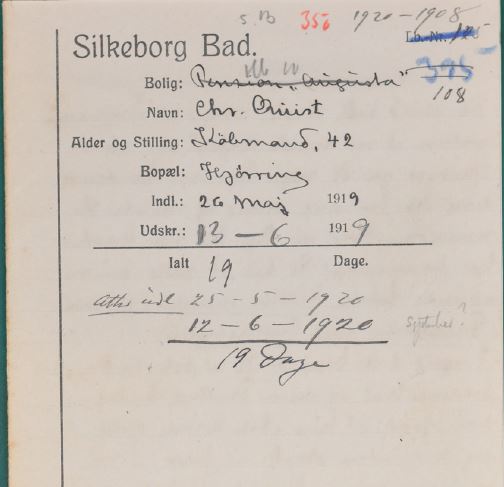 S. B 356 1920-1908
Silkeborg Bad. Lb.-Nr.
395
Bolig: Pension "Augusta" 108
Navn: Chr. Quist
Alder og Stilling: Købmand, 42
Bopæl: Hjørring
Indl.: 26 Maj 1919
Udskr.: 13 - 6 1919
Ialt 19 Dage.
indl 25-5-1920
12-6-1920 September?
19 Dage